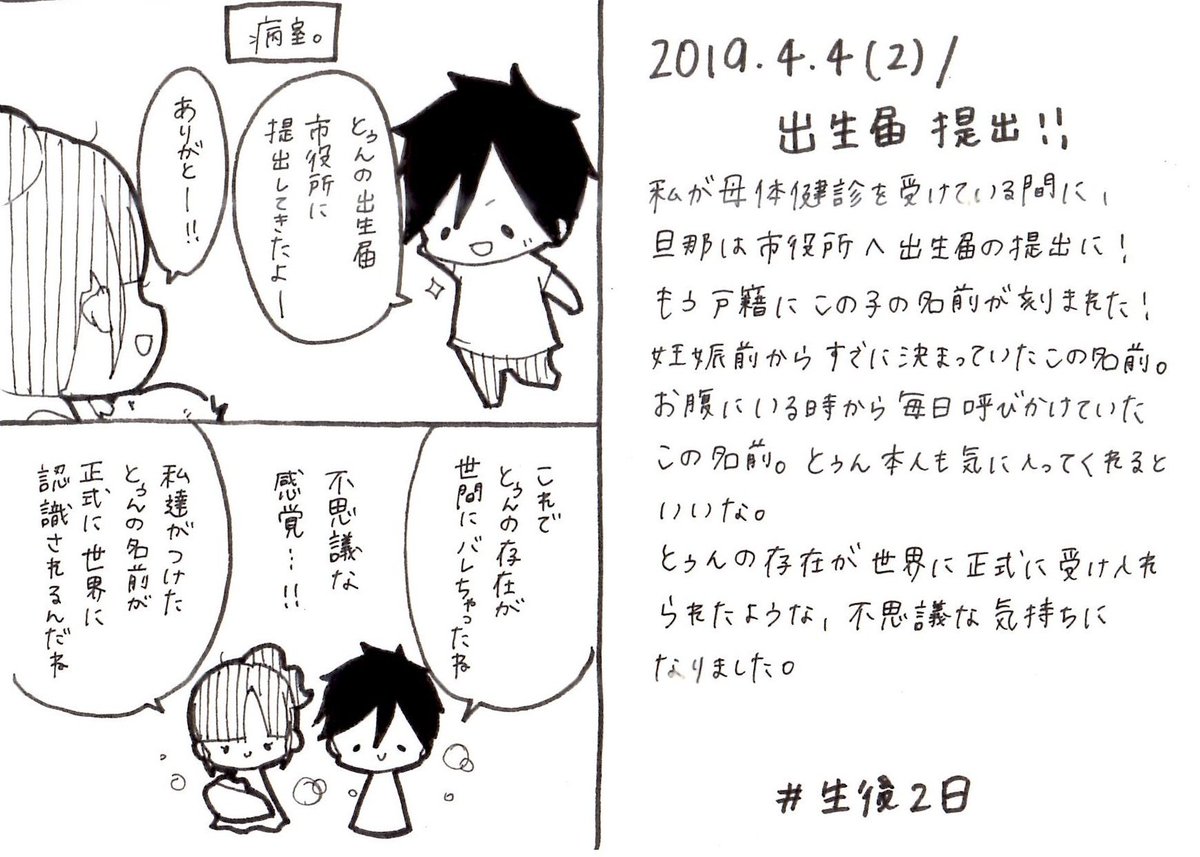 病室。
とぅんの出生届
市役所に
提出してきたよー
ありがとー!!
これで
とぅんの存在が
世間にバレちゃったね
不思議な
感覚…!!
私達がつけた
とぅんの名前が
正式に世界に
認識されるんだね
2019.4.4(2)/
出生届 提出!!
私が母体健診を受けている間に、
旦那は市役所へ出生届の提出に!
もう戸籍にこの子の名前が刻まれた!
妊娠前からすでに決まっていたこの名前。
お腹にいる時から毎日呼びかけていた
この名前。とぅん本人も気に入ってくれると
いいな。
とぅんの存在が世界に正式に受け入れ
られたような、不思議な気持ちに
なりました。
#生後2日